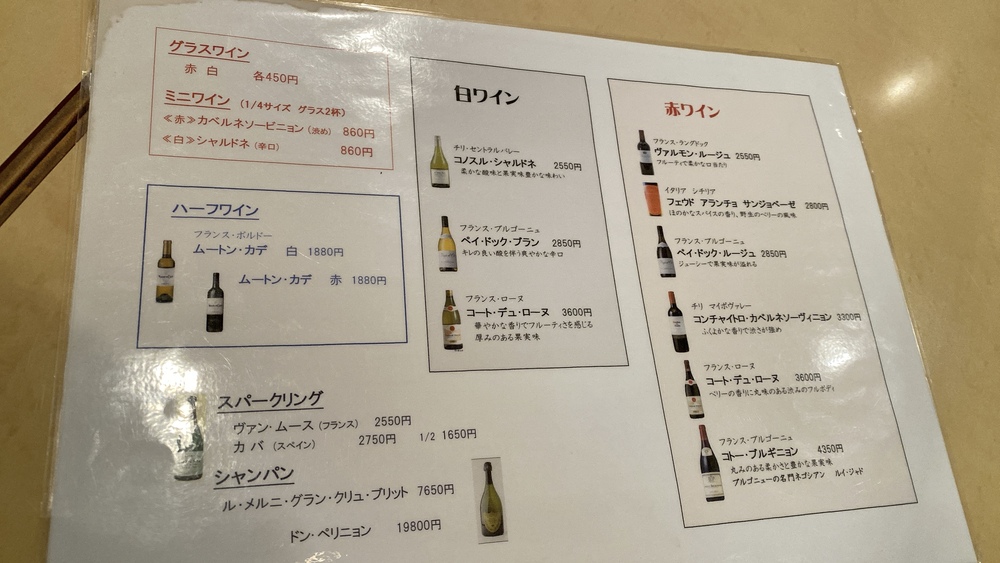 グラスワイン
赤 白 各450円
ミニワイン (1/4サイズ グラス2杯)
≪赤≫カベルネソービニョン(渋め) 860円
≪白≫シャルドネ(辛口) 860円
ハーフワイン
フランス・ボルドー
ムートン・カデ 白 1880円
ムートン・カデ 赤 1880円
スパークリング
ヴァン・ムース(フランス) 2550円
カバ (スペイン) 2750円 1/2 1650円
シャンパン
ル・メルニ・グラン・クリュ・ブリット 7650円
ドン・ペリニョン 19800円
白ワイン
チリ・セントラルバレー
コノスル・シャルドネ 2550円
柔かな酸味と果実味豊かな味わい
フランス・ブルゴーニュ
ペイ・ドック・ブラン 2850円
キレの良い酸を伴う爽やかな辛口
フランス・ローヌ
コート・デュ・ローヌ 3600円
華やかな香りでフルーティさを感じる
厚みのある果実味
赤ワイン
フランス・ラングドック
ヴァルモン・ルージュ 2550円
フルーティで柔かな口当たり
イタリア シチリア
フェウド アランチョ サンジョベーゼ 2800円
ほのかなスパイスの香り、野生のベリーの風味
フランス・ブルゴーニュ
ペイ・ドック・ルージュ 2850円
ジューシーで果実味が溢れる
チリ マイポヴァレー
コンチャイトロ・カベルネソーヴィニョン 3300円
ふくよかな香りで渋さが強め
フランス・ローヌ
コート・デュ・ローヌ 3600円
ベリーの香りに丸味のある渋みのフルボディ
フランス・ブルゴーニュ
コトー・ブルギニョン 4350円
丸みのある柔かさと豊かな果実味
ブルゴニューの名門ネゴシアン ルイ・ジャド